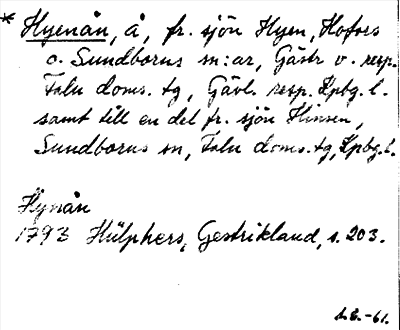 * Hyenån, å, fr. sjön Hyen, Hofors
o. Sundborns sn:ar, Gästr v. resp.
Falu doms. tg, Gävl. resp. Kpbg. l.
samt till en del fr. sjön Hinsen,
Sundborns sn, Falu doms. tg, Kpbg. l.
Hynån
1793 Hülphers, Gestrikland, s. 203.
S.E. -61.